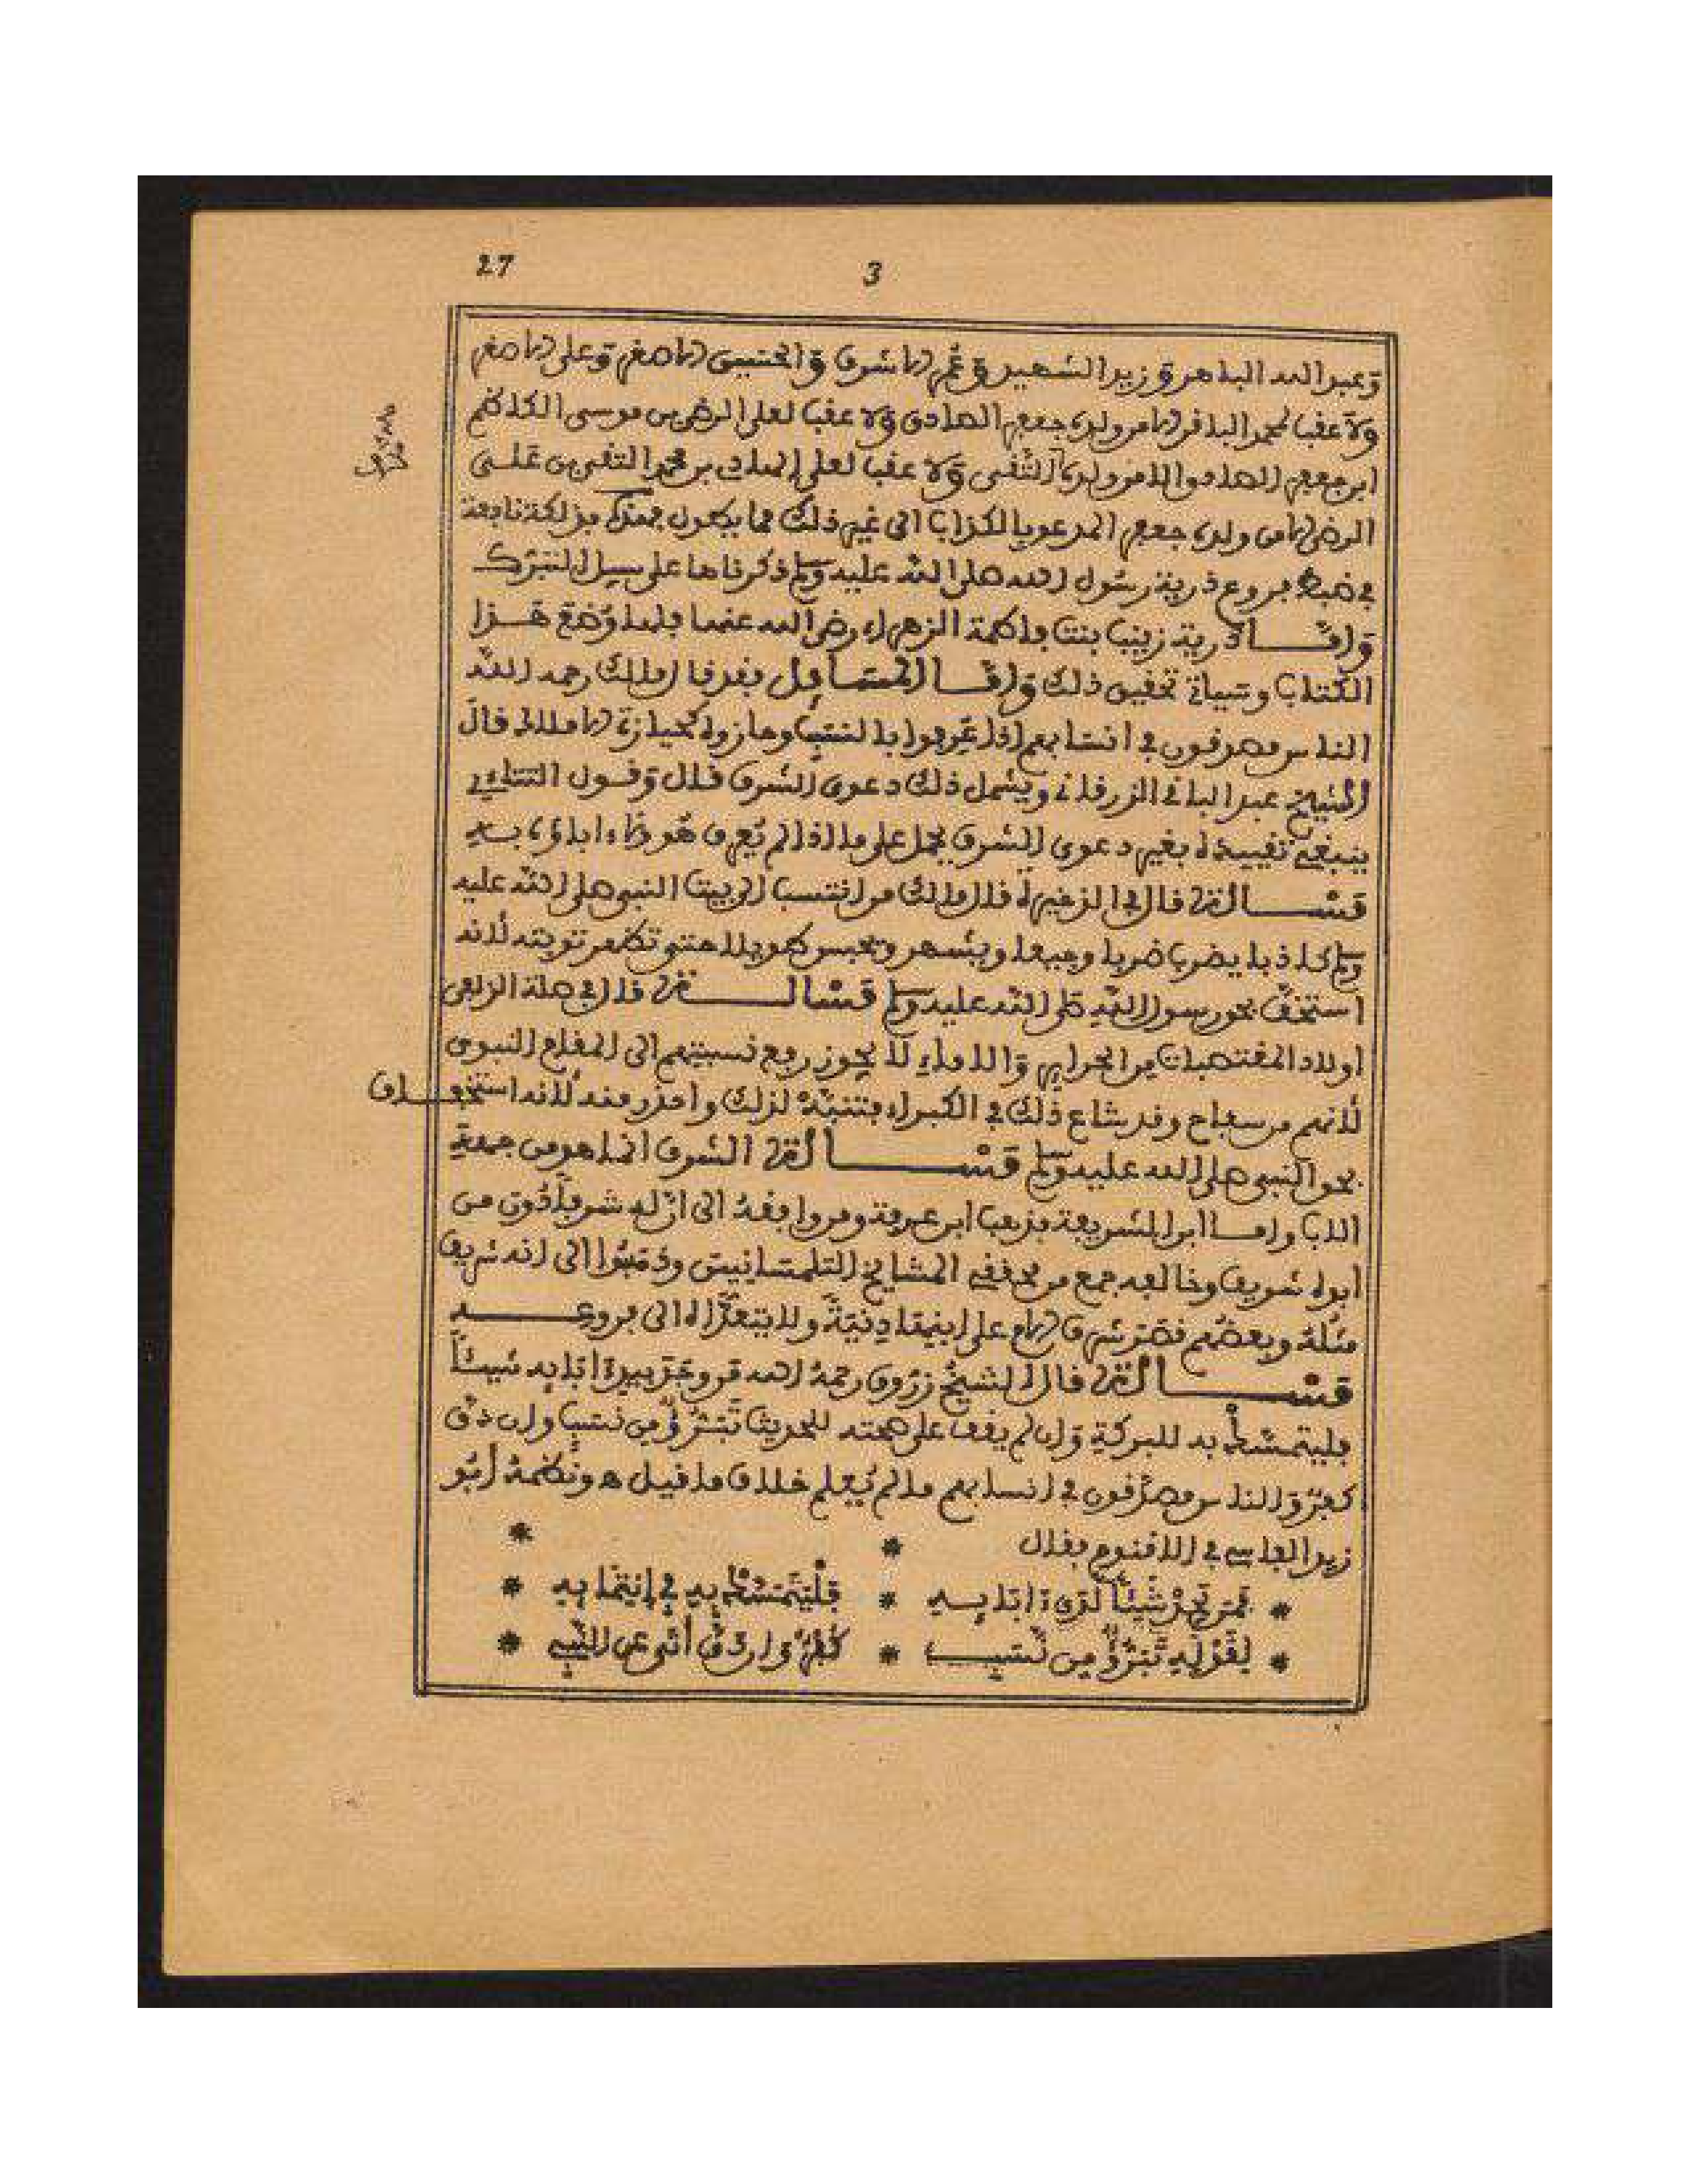 27
3
وعبد الله الباهر وزيد الشهيد وعمر الاشرف والحسين الاصغر وعلى الاصغر
ولا عقب لمحمد الباقر الا من ولده جعفر الصادق ولا عقب لعلى الرضى بن موسى الكاظم
ابن جعفر الصادق الا من ولده التقى ولا عقب لعلى الهادى بن محمد التقى بن على
الرضى الا من ولده جعفر المدعو بالكذاب الى غير ذلك مما يكون
فى ضبط فروع ذرية رسول الله صلى الله عليه وسلم ذكرناها على سبيل التبرك
واما ذرية زينب بنت فاطمة الزهراء رضى الله عنها فلها وضع هذا
الكتاب وسياتى تحقيق ذلك واما المسائل فقد قال مالك رحمه الله
الناس مصدقون فى انسابهم اذا عرفوا بالنسب وحازوه كحيازة الاملاك قال
الشيخ عبد الباقى الزرقانى ويشمل ذلك دعوى الشرف قال وقول التتائى
ينبغى تقييده بغير دعوى الشرف يحمل على ما اذا لم يعرف هو ولا اباؤه به
مسالة قال فى الذخيرة قال مالك من انتسب الى بيت النبى صلى الله عليه
وسلم كاذبا يضرب ضربا وجيعا ويشهر ويحبس طويلا حتى تظهر توبته لانه
استخف بحق رسول الله صلى الله عليه وسلم مسالة قال فى صلة الزلفى
اولاد المغتصبات من الحراير والاماء لا يجوز رفع نسبتهم الى المقام النبوى
لانهم من سفاح وقد شاع ذلك فى الكبراء فتنبه لذلك واحذر منه لانه استخفاف
بحق النبى صلى الله عليه وسلم مسالة الشرف انما هو من جهة
الاب واما ابن الشريفة فذهب ابن عرفة ومن وافقه الى ان له شرفا دون من
ابوه شريف وخالفه جمع من محققى المشايخ التلمسانيين وذهبوا الى انه شريف
مثله وبعضهم قصر شرف الام على ابنها دنية ولا يتعداه الى فروعه
مسالة قال الشيخ زروق رحمه الله من وجد بيد ابايه شيئا
فليتمسك به للبركة وان لم يقف على صحته للحديث تبرؤ من نسب وان دق
كفر والناس مصدقون فى انسابهم ما لم يعلم خلاف ما قيل هو ونظمه ابو
زيد الفاسى فى الاقنوم فقال * *
* فمن يجد شيئا لدى ابايه * فليتمسك به فى انتمايه *
* لقوله تبرؤ من نسب * كفر وان دق أتى عن النبى *